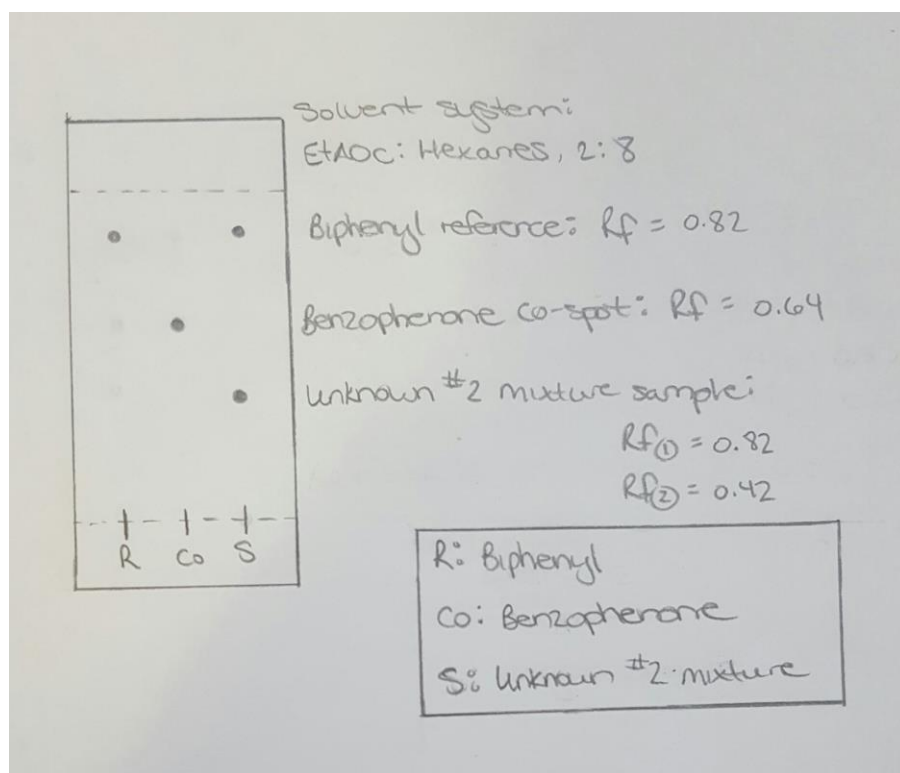 Solvent system:
EtAOC: Hexanes, 2:8
Biphenyl reference: Rf = 0.82
Benzophenone co-spot: Rf = 0.64
Unknown #2 mixture sample:
Rf① = 0.82
Rf② = 0.42
R Co S
R: Biphenyl
Co: Benzophenone
S: Unknown #2 mixture